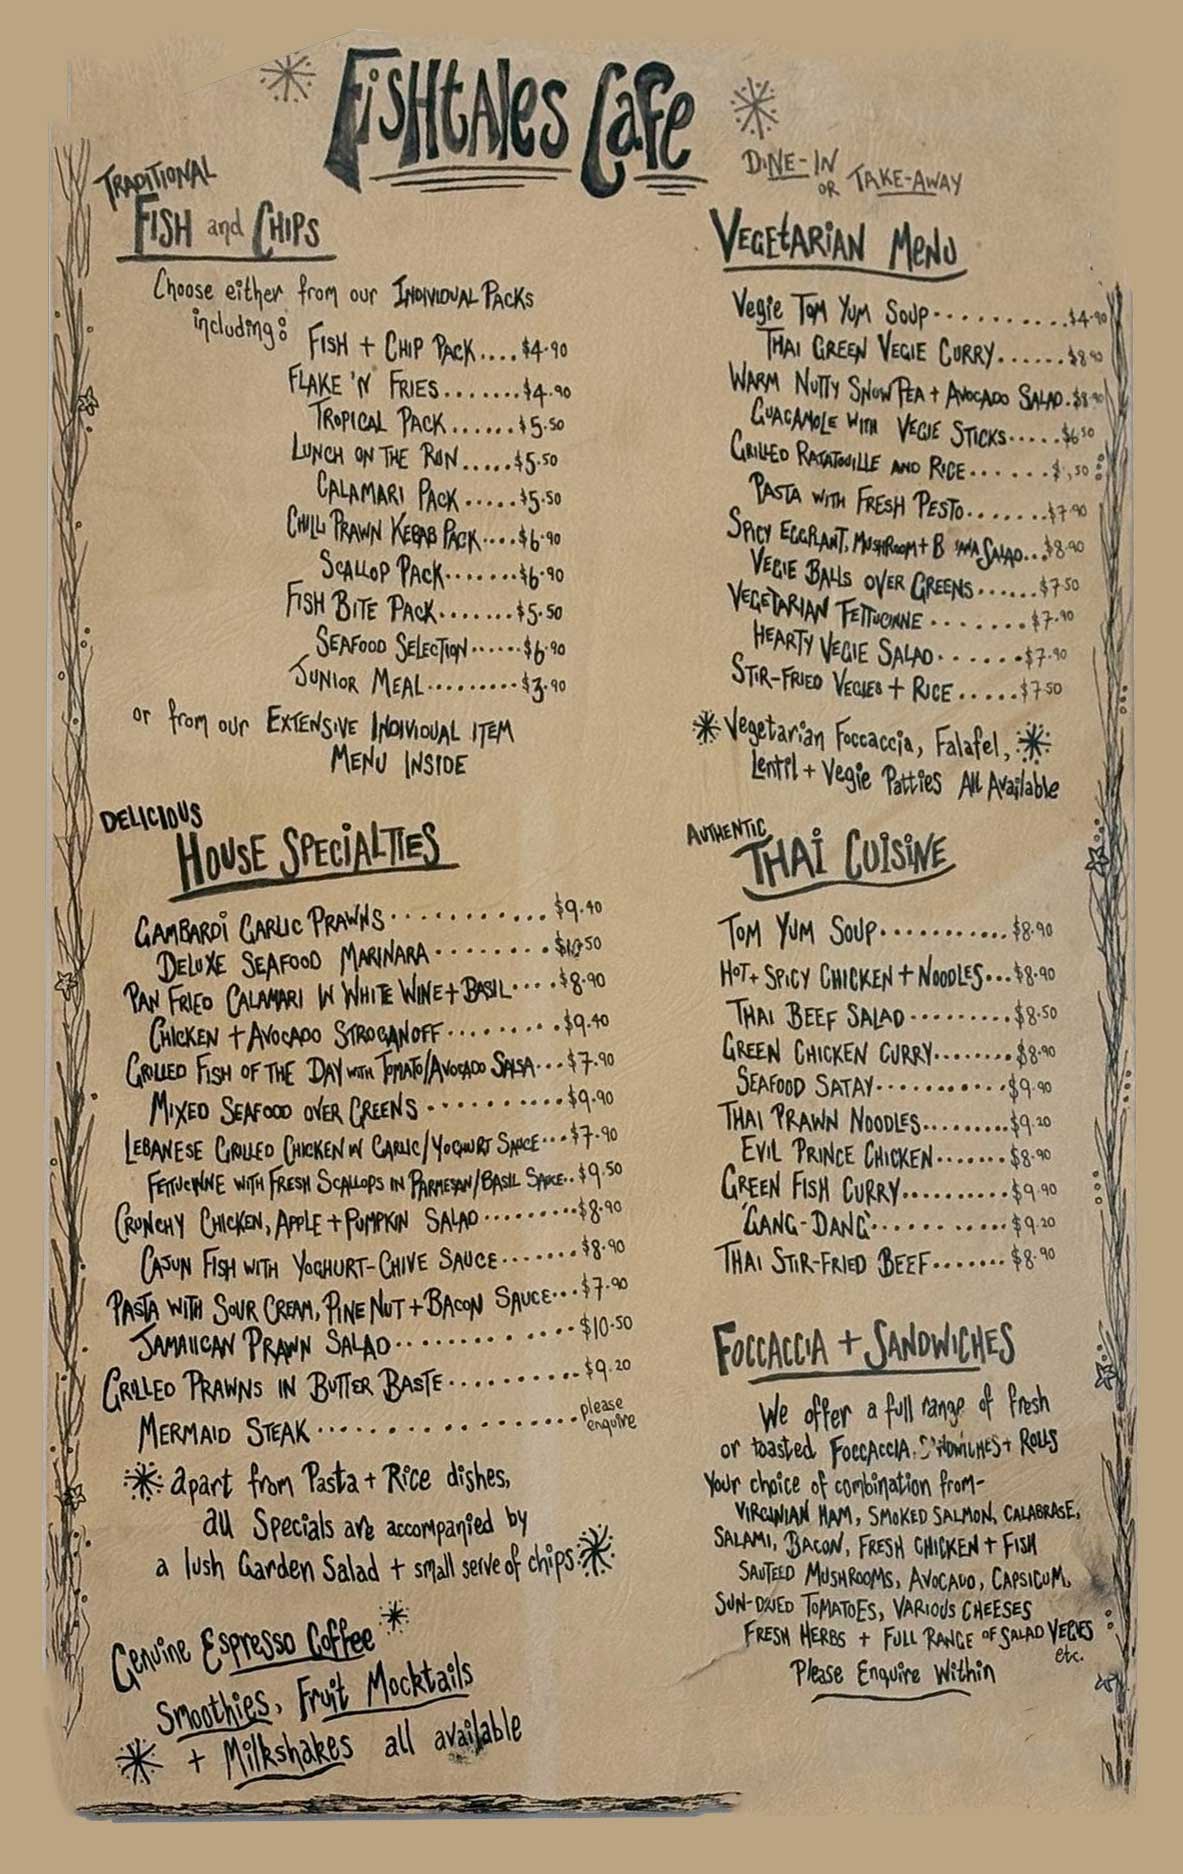 FisHtAles Cafe
DINE-IN
OR TAKE-AWAY
TRADITIONAL
FISH and CHIPS
Choose either from our INDIVIDUAL PACKS
including:
FISH + CHIP PACK....$4.90
FLAKE 'N' FRIES.......$4.90
TROPICAL PACK......$5.50
LUNCH ON THE RUN.....$5.50
CALAMARI PACK.....$5.50
CHILLI PRAWN KEBAB PACK....$6.90
SCALLOP PACK.......$6.90
FISH BITE PACK.......$5.50
SEAFOOD SELECTION......$6.90
JUNIOR MEAL.........$3.90
or from our EXTENSIVE INDIVIDUAL ITEM
MENU INSIDE
DELICIOUS
HOUSE SPECIALTIES
GAMBARDI GARLIC PRAWNS...........$9.90
DELUXE SEAFOOD MARINARA........$10.50
PAN FRIED CALAMARI IN WHITE WINE + BASIL....$8.90
CHICKEN + AVOCADO STROGANOFF........$9.40
GRILLED FISH OF THE DAY WITH TOMATO/AVOCADO SALSA...$7.90
MIXED SEAFOOD OVER GREENS...........$9.90
LEBANESE GRILLED CHICKEN IN GARLIC/YOGHURT SAUCE...$7.90
FETTUCINNE WITH FRESH SCALLOPS IN PARMESAN/BASIL SAUCE..$9.50
CRUNCHY CHICKEN, APPLE + PUMPKIN SALAD.........$8.90
CAJUN FISH WITH YOGHURT-CHIVE SAUCE.......$8.90
PASTA WITH SOUR CREAM, PINE NUT + BACON SAUCE...$7.90
JAMAIICAN PRAWN SALAD............$10.50
GRILLED PRAWNS IN BUTTER BASTE..........$9.20
MERMAID STEAK.................please enquire
apart from Pasta + Rice dishes,
all Specials are accompanied by
a lush Garden Salad + small serve of chips
Genuine Espresso Coffee
Smoothies, Fruit Mocktails
+ Milkshakes all available
VEGEtARIAN MENU
Vegie TOM YUM SOUP..........$4.90
THAI GREEN VEGIE CURRY......$8.90
WARM NUTTY SNOW PEA + AVOCADO SALAD.$8.90
GUACAMOLE WITH VEGIE STICKS.....$6.50
GRILLED RATATOUILLE AND RICE.......$ .50
PASTA WITH FRESH PESTO.......$7.90
SPICY EGGPLANT, MUSHROOM + SALAD...$8.90
VEGIE BALLS OVER GREENS......$7.50
VEGETARIAN FETTUCINNE........$7.90
HEARTY VEGIE SALAD.......$7.90
STIR-FRIED VEGIES + RICE.....$7.50
Vegetarian Foccaccia, Falafel,
Lentil + Vegie Patties All Available
AUTHENTIC
THAI CUISINE
TOM YUM SOUP............$8.90
HOT + SPICY CHICKEN + NOODLES...$8.90
THAI BEEF SALAD..........$8.50
GREEN CHICKEN CURRY........$8.90
SEAFOOD SATAY............$9.90
THAI PRAWN NOODLES.........$9.20
EVIL PRINCE CHICKEN.......$8.90
GREEN FISH CURRY..........$9.90
'GANG-DANG'............$9.20
THAI STIR-FRIED BEEF.......$8.90
FOCCACCIA + SANDWICHES
We offer a full range of fresh
or toasted FOCCACCIA, SANDWICHES + ROLLS
Your choice of combination from-
VIRGINIAN HAM, SMOKED SALMON, CALABRASE,
SALAMI, BACON, FRESH CHICKEN + FISH
SAUTEED MUSHROOMS, AVOCADO, CAPSICUM,
SUN-DRIED TOMATOES, VARIOUS CHEESES
FRESH HERBS + FULL RANGE OF SALAD VEGIES
etc.
Please Enquire Within